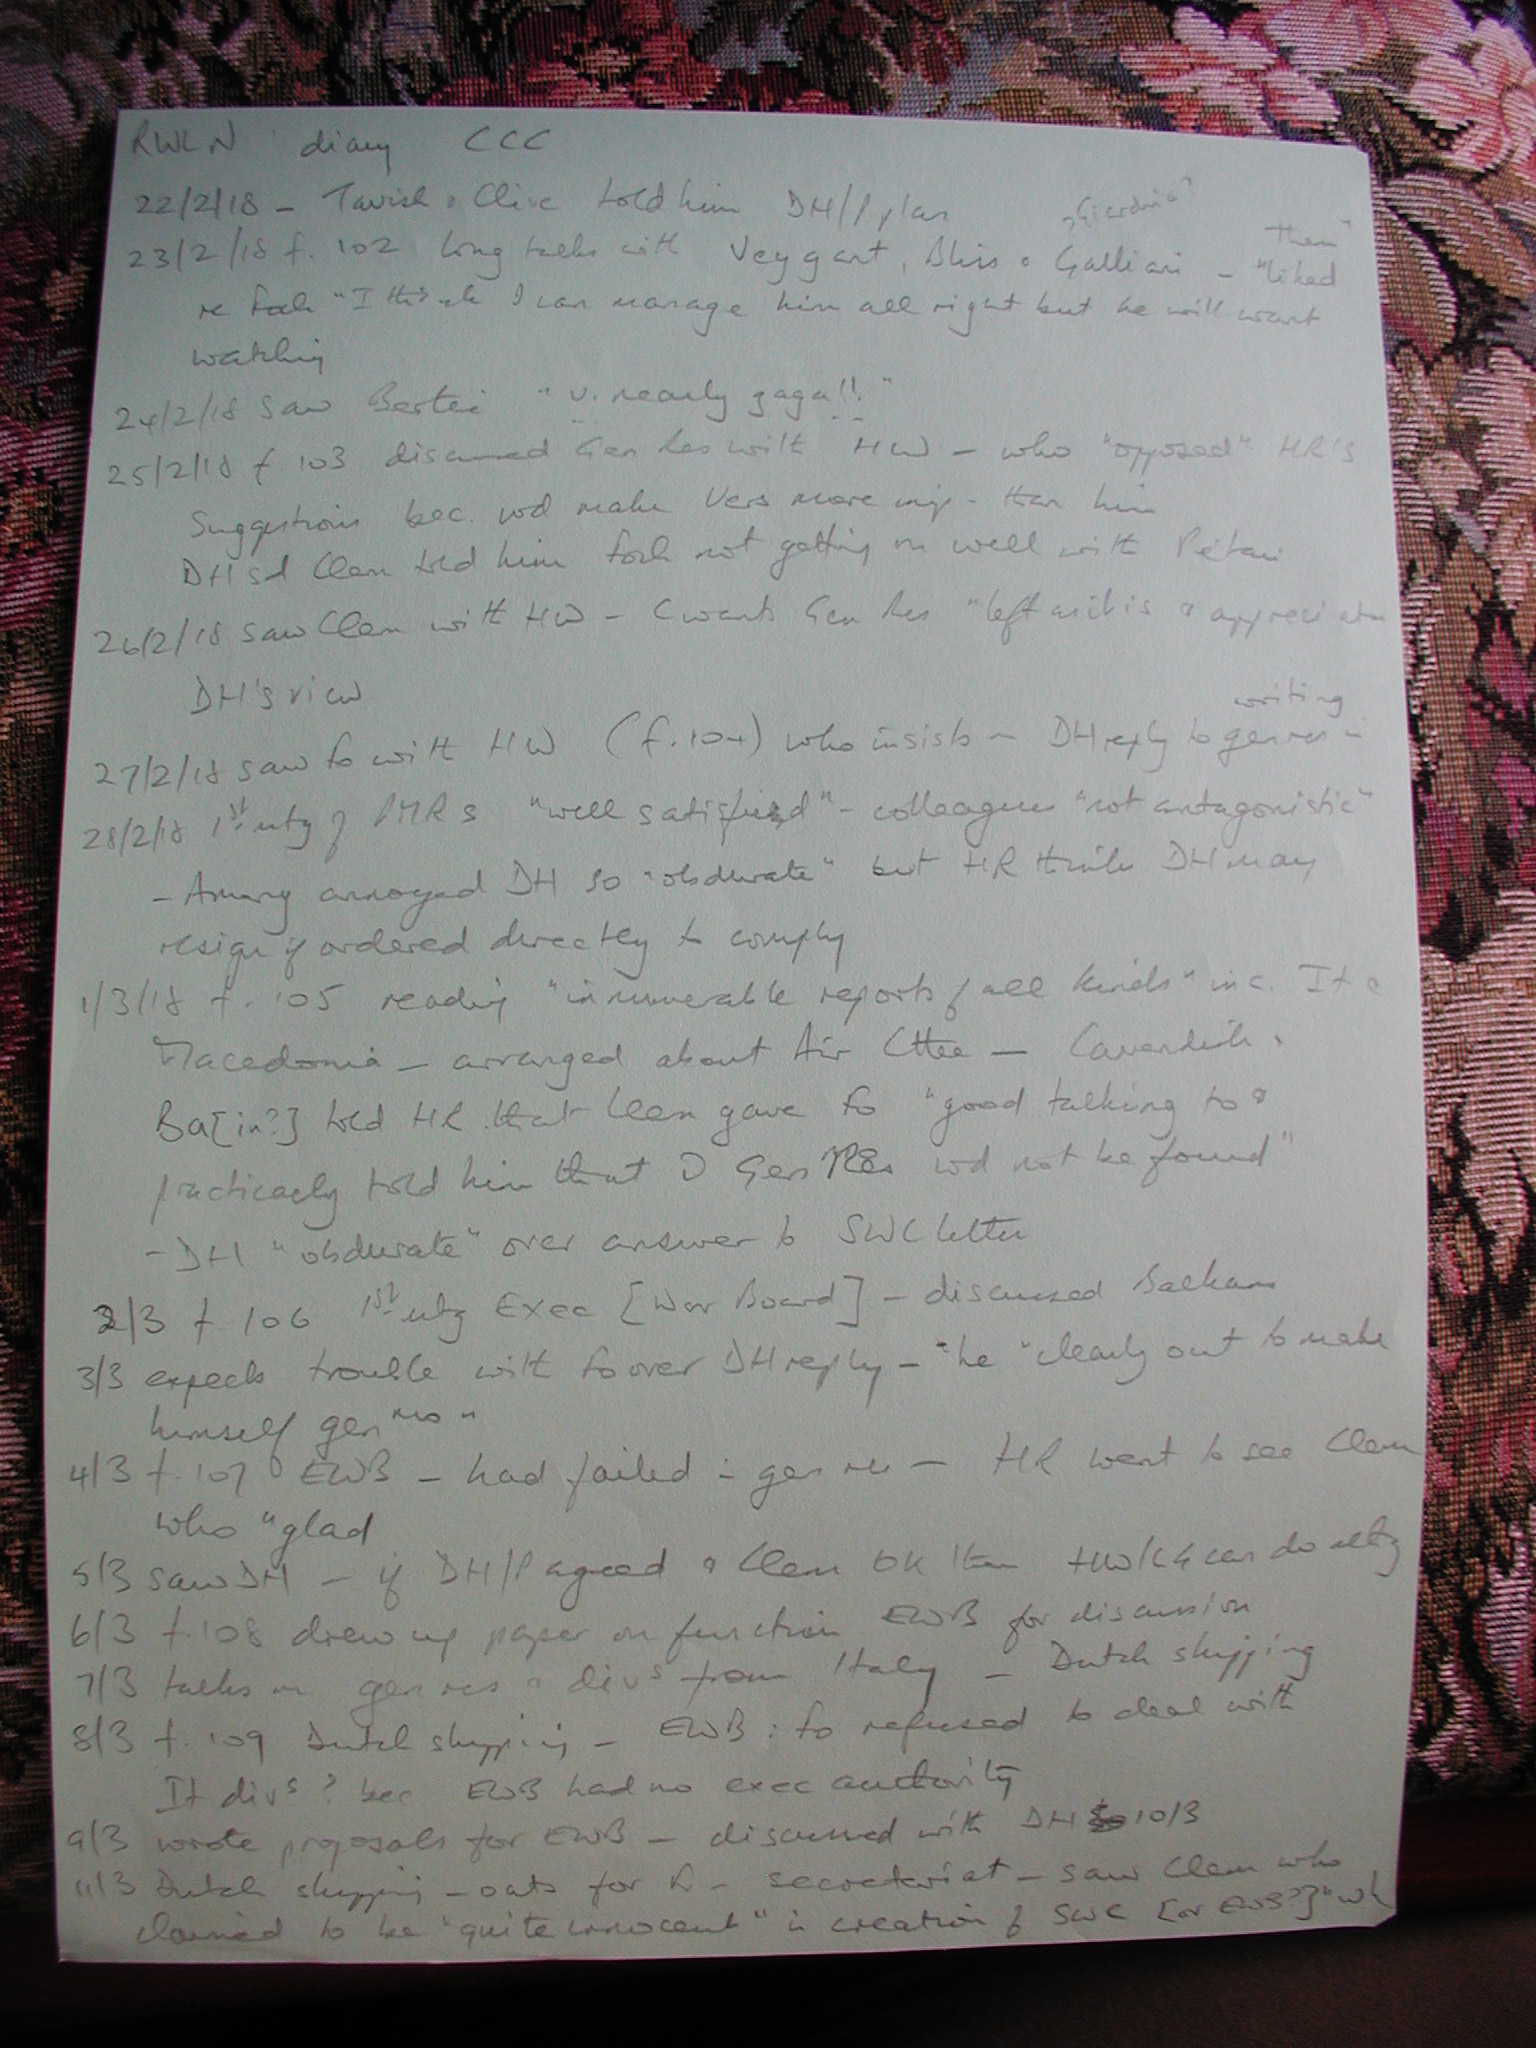 RWLN diary CCC
22/2/18 - Tavish & Clive told him DH/P plan
23/2/18 f. 102 long talks with Veygart, Bliss & Gallieni - "liked them"
re Foch "I think I can manage him all right but he will want
watching
24/2/18 saw Bertie "v. nearly gaga!!"
25/2/18 f. 103 discussed Gen Res with HW - who "opposed" HR's
suggestions bec. wd make Vers more imp. than him
DH sd Clem told him Foch not getting on well with Pétain
26/2/18 saw Clem with HW - C wants Gen Res "left as it is & appreciates
DH's view
27/2/18 saw Fo with HW (f. 104) who insists on DH reply to gen res in writing
28/2/18 1st mtg of PMRs "well satisfied" - colleagues "not antagonistic"
- Amery annoyed DH so "obdurate" but HR thinks DH may
resign if ordered directly to comply
1/3/18 f. 105 reading "innumerable reports of all kinds" inc. It &
Macedonia - arranged about Air Cttee - Cavendish &
Ba[in?] told HR that Clem gave Fo "good talking to &
practically told him that D Gens Res wd not be found"
- DH "obdurate" over answer to SWC letter
2/3 f. 106 1st mtg Exec [War Board] - discussed Balkans
3/3 expects trouble with Fo over DH reply - he "clearly out to make
himself gen mo"
4/3 f. 107 EWB - had failed in gen res - HR went to see Clem
who "glad
5/3 saw DH - if DH/P agreed & Clem OK then HW/LG can do nthg
6/3 f. 108 drew up paper on function EWB for discussion
7/3 talks on gen res & divs from Italy - Dutch shipping
8/3 f. 109 Dutch shipping - EWB: Fo refused to deal with
It divs? bec EWB had no exec authority
9/3 wrote proposals for EWB - discussed with DH 10/3
11/3 Dutch shipping - oats for R - secretariat - saw Clem who
claimed to be "quite innocent" in creation of SWC [or EWB?] "wh